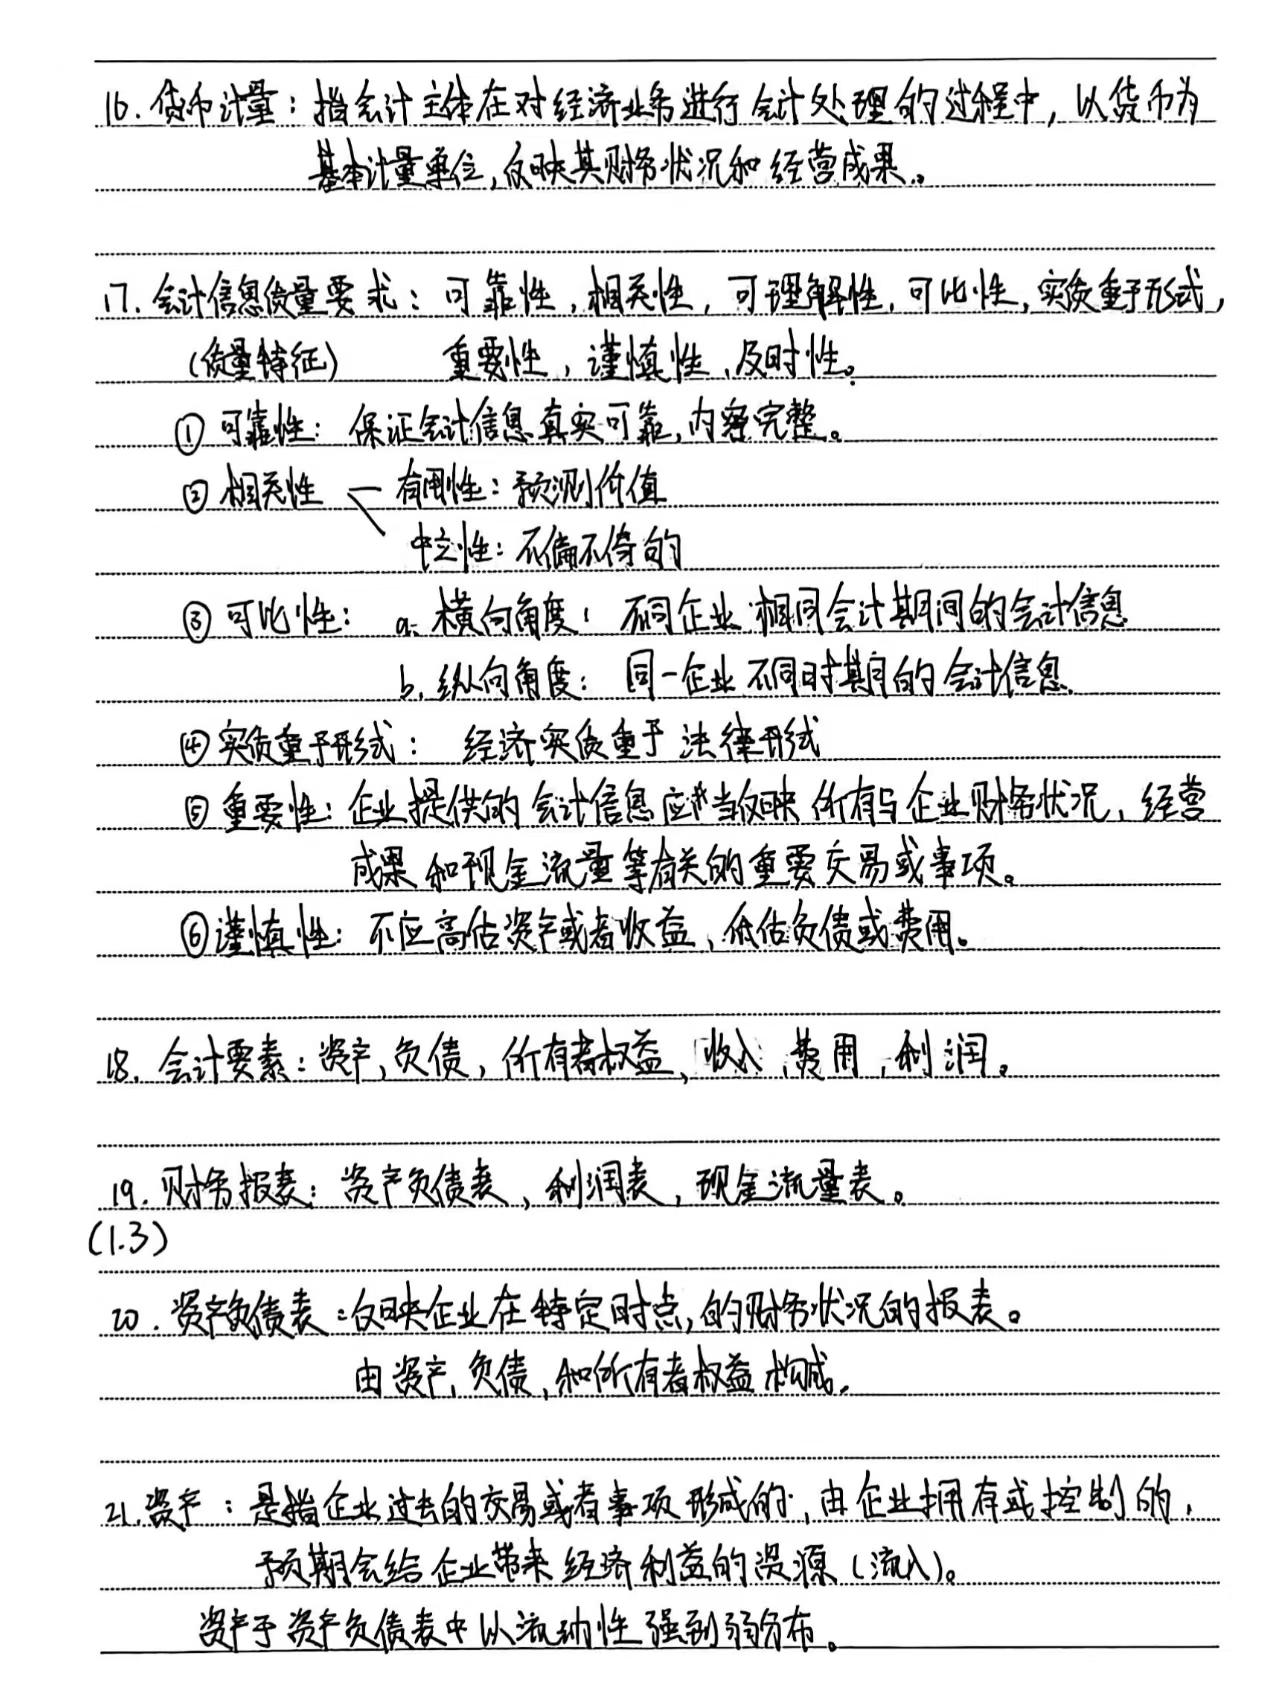 16. 货币计量：指会计主体在对经济业务进行会计处理的过程中，以货币为
基本计量单位，反映其财务状况和经营成果。
17. 会计信息质量要求：可靠性，相关性，可理解性，可比性，实质重于形式，
(质量特征) 重要性，谨慎性，及时性。
① 可靠性：保证会计信息真实可靠，内容完整。
② 相关性 有用性：预测价值
中立性：不偏不倚的
③ 可比性： a. 横向角度：不同企业相同会计期间的会计信息
b. 纵向角度：同一企业不同时期的会计信息
④ 实质重于形式： 经济实质重于法律形式
⑤ 重要性：企业提供的会计信息应当反映所有与企业财务状况，经营
成果和现金流量等有关的重要交易或事项。
⑥ 谨慎性：不应高估资产或者收益，低估负债或费用。
18. 会计要素：资产，负债，所有者权益，收入，费用，利润。
19. 财务报表：资产负债表，利润表，现金流量表。
(1.3)
20. 资产负债表：反映企业在特定时点，的财务状况的报表。
由资产，负债，和所有者权益构成。
21. 资产：是指企业过去的交易或者事项形成的，由企业拥有或控制的，
预期会给企业带来经济利益的资源(流入)。
资产于资产负债表中以流动性强到弱分布。